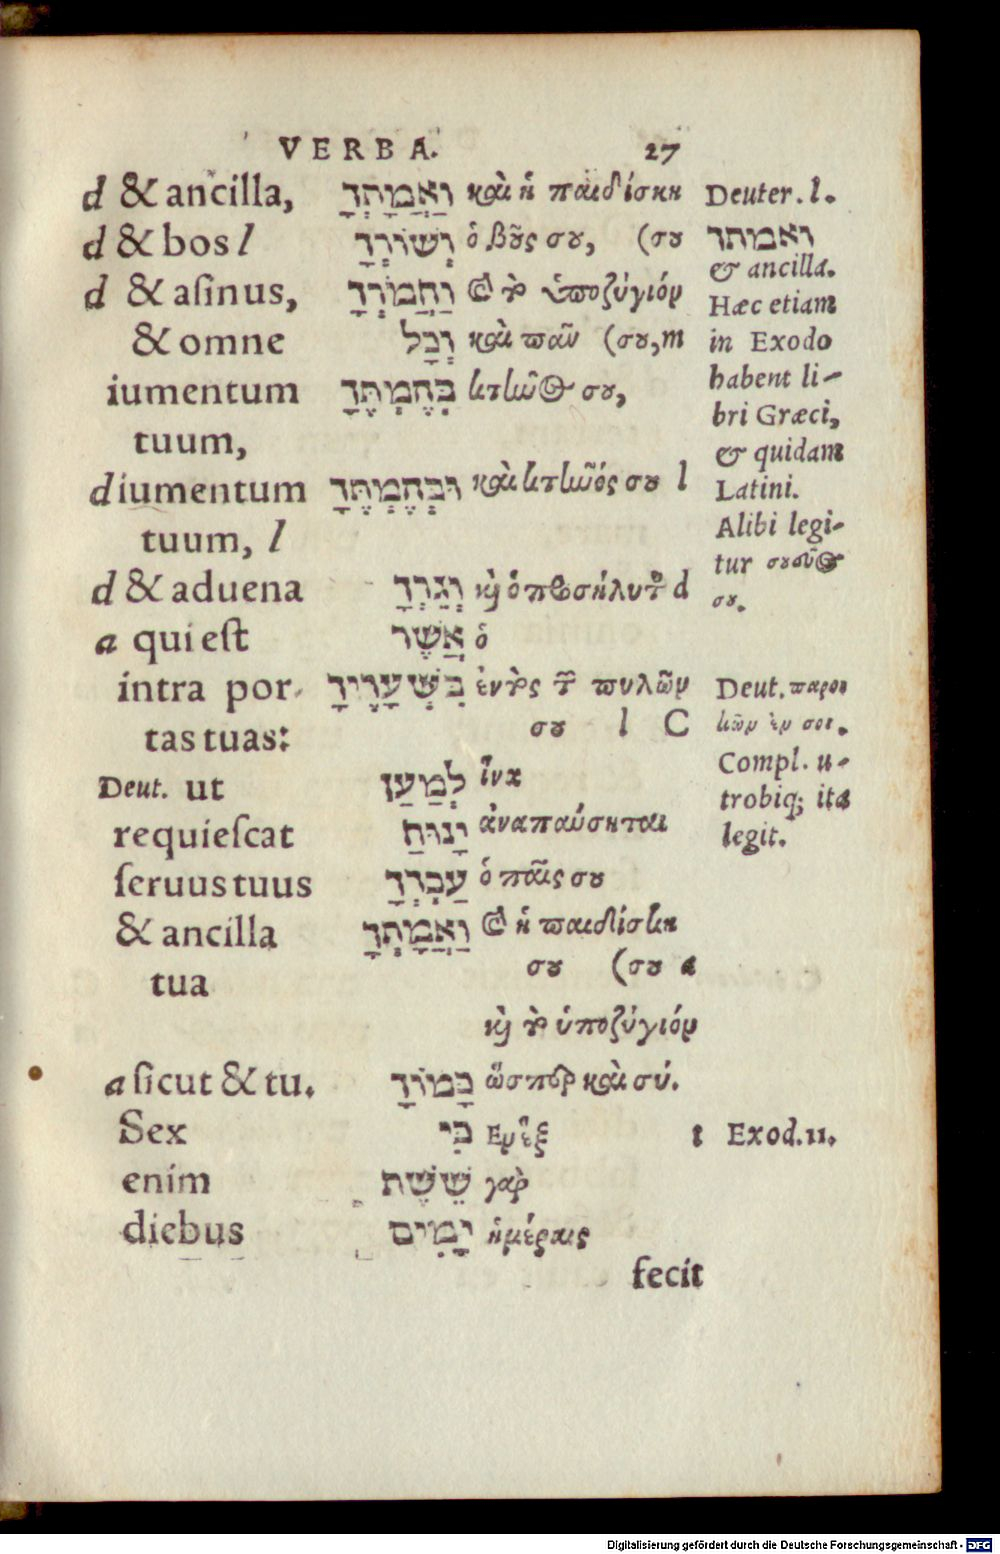 VERBA. 27
d & ancilla, וַאֲמָתְךָ καὶ ἡ παιδίσκη Deuter. l.
d & bos l וְשׁוֹרְךָ ὁ βοῦς σου, (σου ואמתך
& ancilla.
d & asinus, וַחֲמֹרְךָ καὶ τὸ ὑποζύγιόν Hæc etiam
& omne וְכָל καὶ πᾶν (σου, m in Exodo
iumentum בְּהֶמְתֶּךָ κτῆνος σου, habent li-
bri Græci,
tuum, & quidam
d iumentum וּבְהֶמְתֶּךָ καὶ κτῆνός σου l Latini.
tuum, l Alibi legi-
tur
d & aduena וְגֵרְךָ καὶ ὁ προσήλυτος d σου.
a qui est אֲשֶׁר ὁ
intra por- בִּשְׁעָרֶיךָ ἐντὸς τῶν πυλῶν Deut. παροι
tas tuas: σου l C κῶν ἐν σοι.
Compl. u-
Deut. ut לְמַעַן ἵνα trobiq; ita
requiescat יָנוּחַ ἀναπαύσηται legit.
seruus tuus עַבְדְּךָ ὁ παῖς σου
& ancilla וַאֲמָתְךָ καὶ ἡ παιδίσκη
tua σου (σου a
καὶ τὸ ὑποζύγιόν
a sicut & tu. כָּמוֹךָ ὥσπερ καὶ σύ.
Sex כִּי Ἐν ἓξ t Exod. 11.
enim שֵׁשֶׁת γὰρ
diebus יָמִים ἡμέραις
fecit
Digitalisierung gefördert durch die Deutsche Forschungsgemeinschaft - DFG